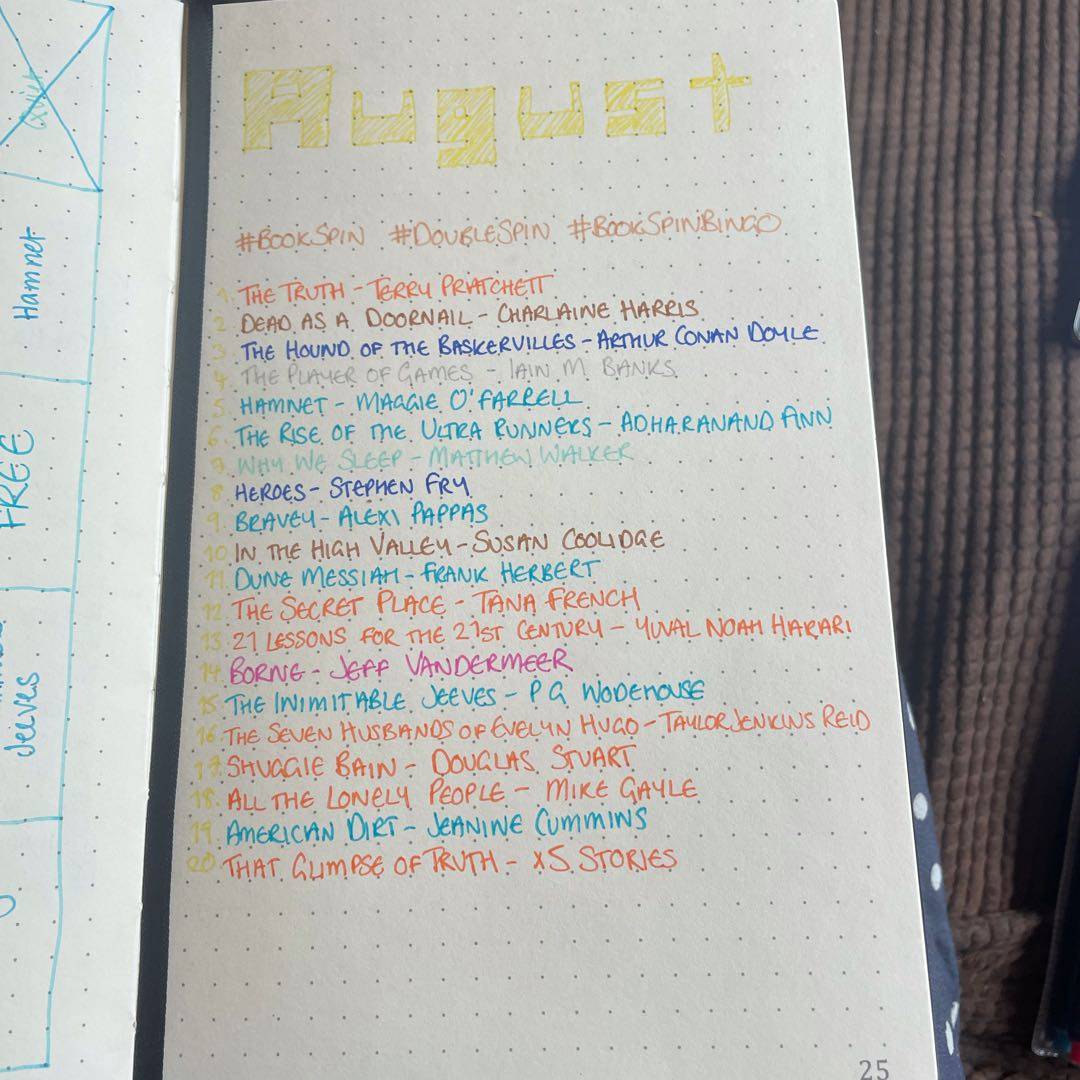 Quiet
Hamnet
FREE
Jeeves
August
#BOOKSPIN #DOUBLESPIN #BOOKSPINBINGO
1. THE TRUTH - TERRY PRATCHETT
2. DEAD AS A DOORNAIL - CHARLAINE HARRIS
3. THE HOUND OF THE BASKERVILLES - ARTHUR CONAN DOYLE
4. THE PLAYER OF GAMES - IAIN M BANKS
5. HAMNET - MAGGIE O'FARRELL
6. THE RISE OF THE ULTRA RUNNERS - ADHARANAND FINN
7. WHY WE SLEEP - MATTHEW WALKER
8. HEROES - STEPHEN FRY
9. BRAVEY - ALEXI PAPPAS
10. IN THE HIGH VALLEY - SUSAN COOLIDGE
11. DUNE MESSIAH - FRANK HERBERT
12. THE SECRET PLACE - TANA FRENCH
13. 21 LESSONS FOR THE 21ST CENTURY - YUVAL NOAH HARARI
14. BORNE - JEFF VANDERMEER
15. THE INIMITABLE JEEVES - P G WODEHOUSE
16. THE SEVEN HUSBANDS OF EVELYN HUGO - TAYLOR JENKINS REID
17. SHUGGIE BAIN - DOUGLAS STUART
18. ALL THE LONELY PEOPLE - MIKE GAYLE
19. AMERICAN DIRT - JEANINE CUMMINS
20. THAT GLIMPSE OF TRUTH - x5 STORIES
25